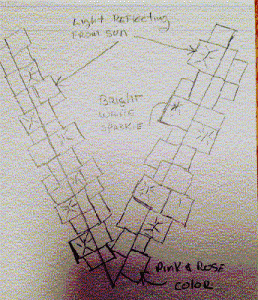 Light Reflecting
From Sun
Bright
White
Sparkle
Pink & Rose
Color